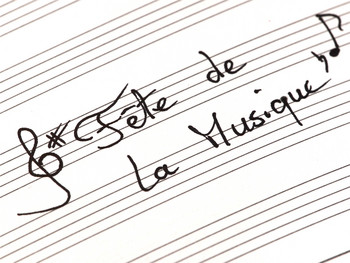 Fête de
la Musique